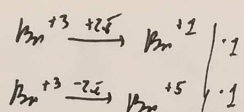 Br⁺³ +2ē → Br⁺¹ | ·1
Br⁺³ -2ē → Br⁺⁵ | ·1